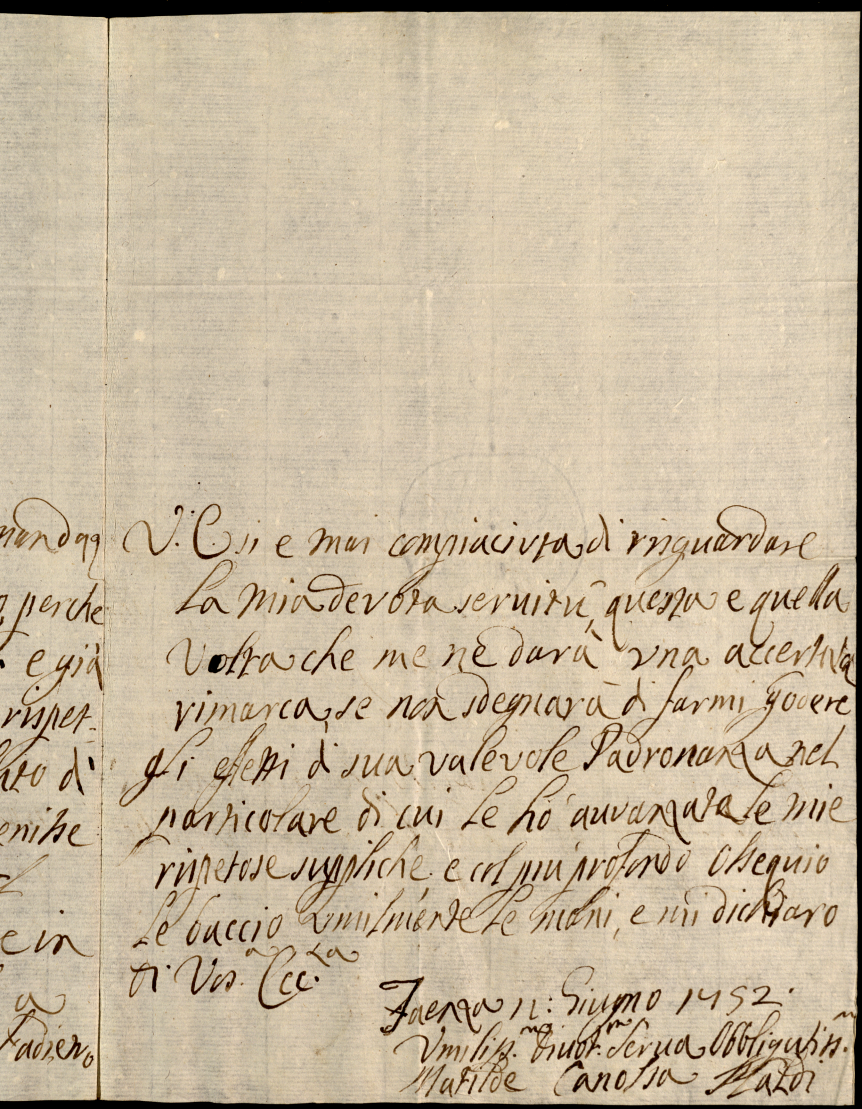 perche
e già
rispet-
di
e in
a
V. E. si e mai compiaciuta di risguardare
La mia devota servitù, questa e quella
Volta che me ne darà una accertata
rimarca, se non sdegnarà di farmi godere
gli effetti di sua valevole Padronanza nel
particolare di cui Le hò auvanzate le mie
rispetose suppliche e col più profondo Ossequio
Le baccio umilmente Le mani, e mi dichiaro
Di Vos.ᵃ Ecc.ᶻᵃ
Faenza 11: Giugno 1752.
Vmiliss.ᵐᵃ Divot.ᵐᵃ Serva Obbligatiss.ᵐᵃ
Matilde Canossa Naldi